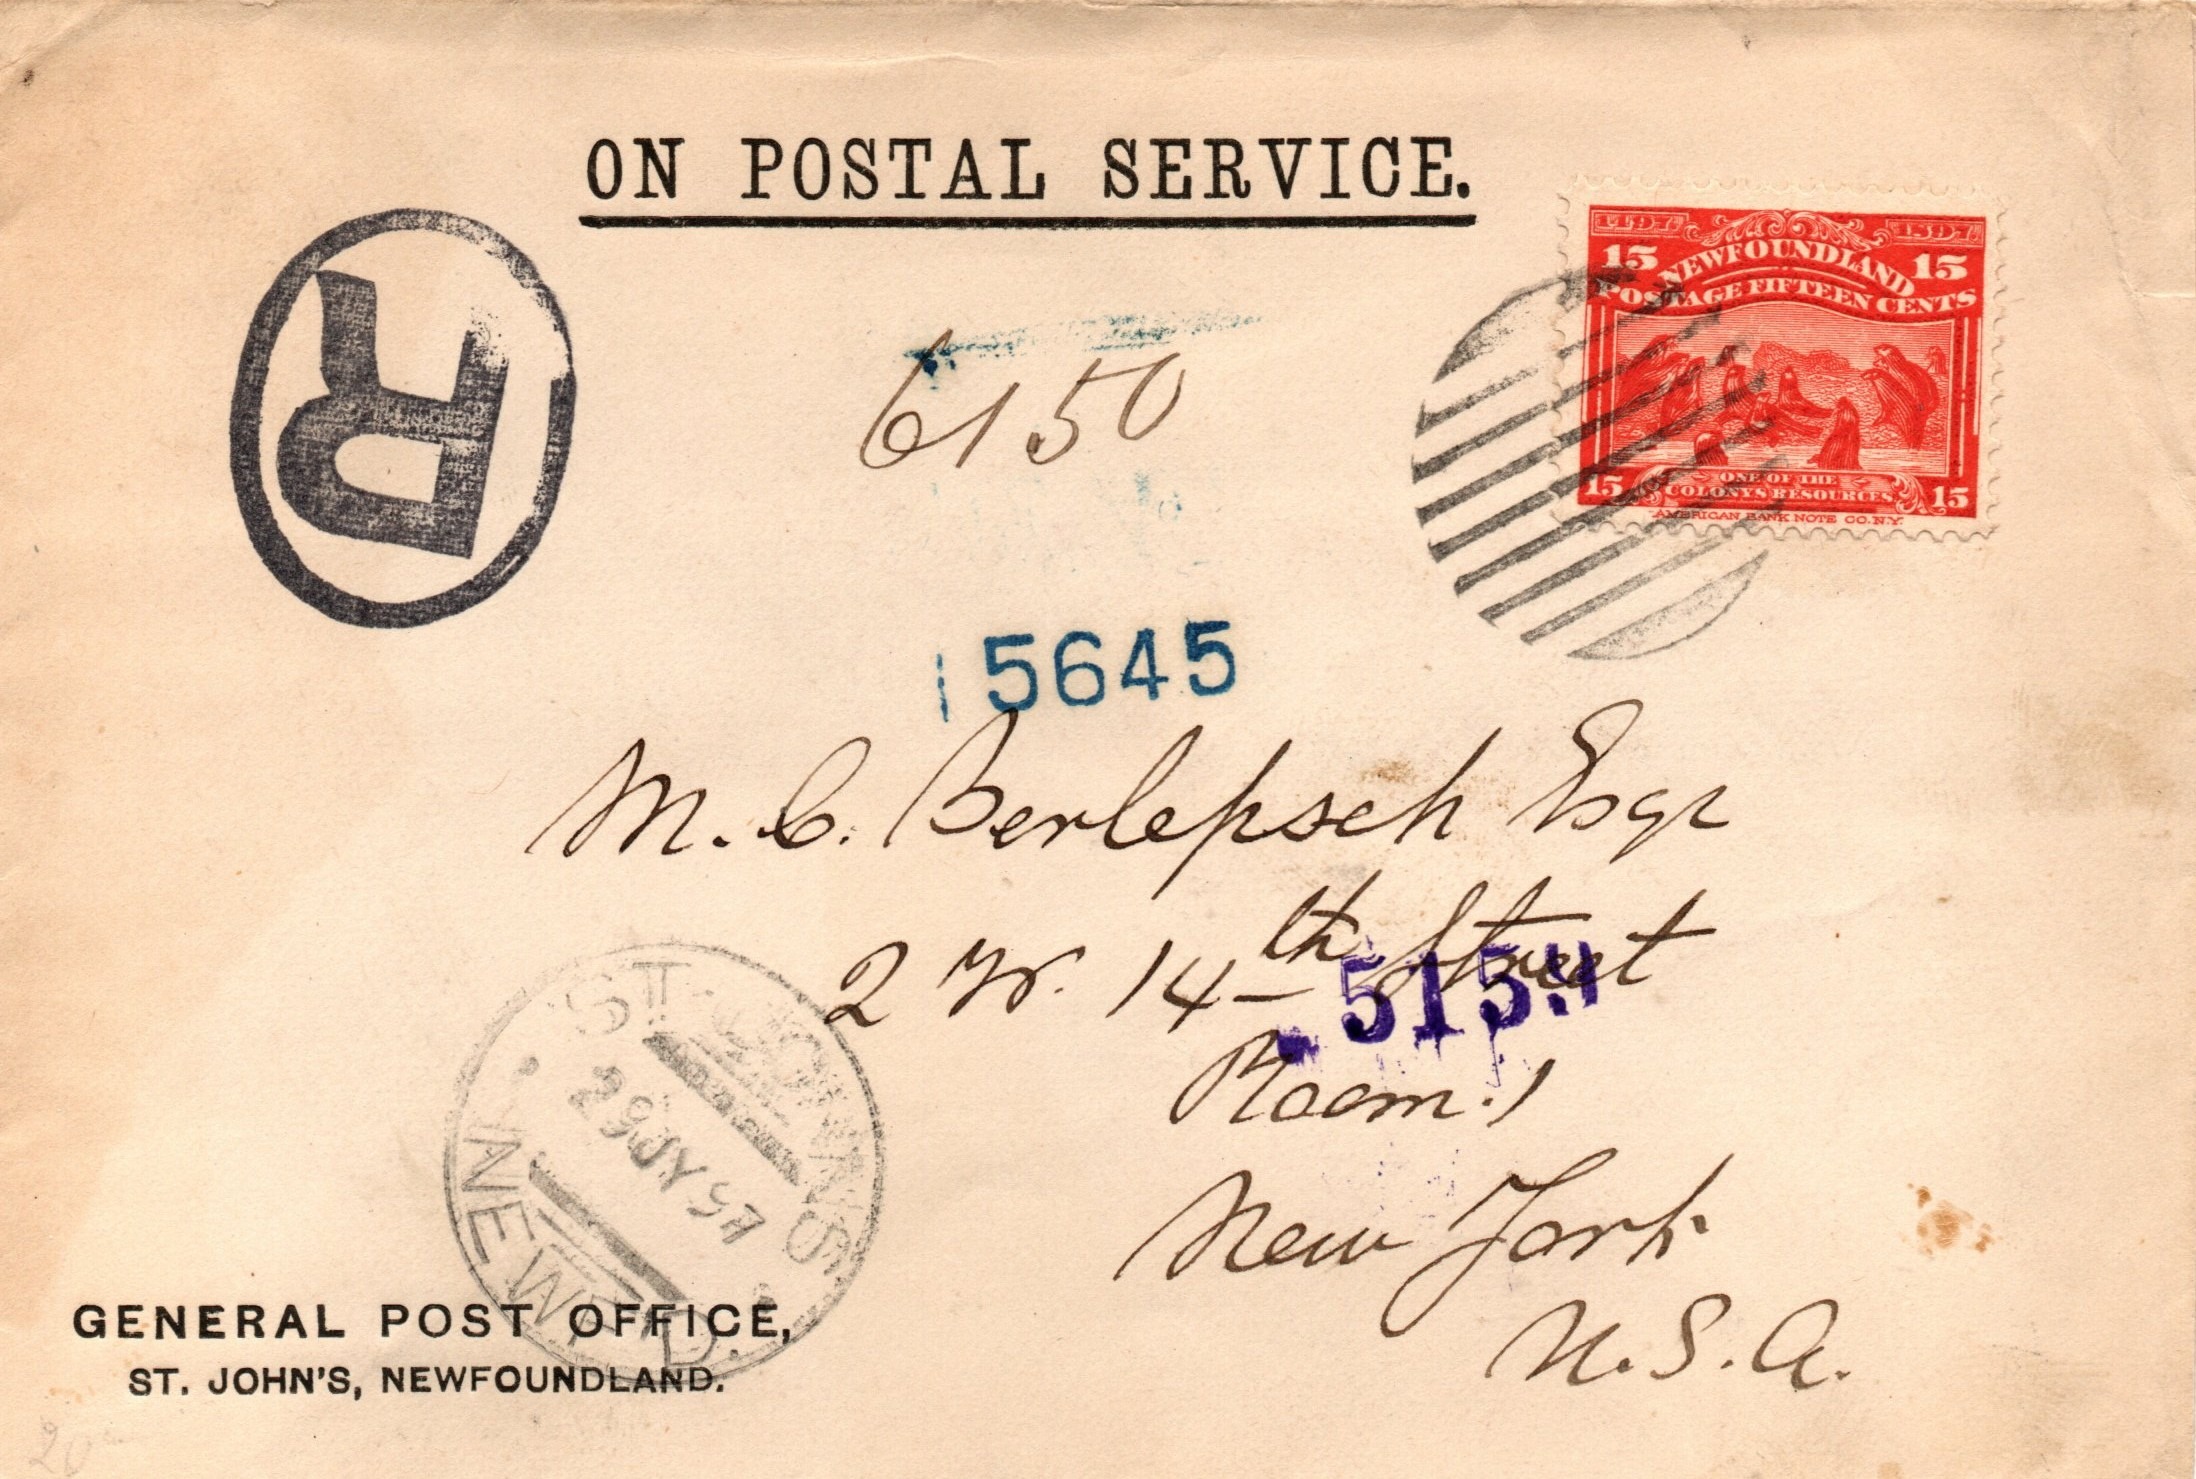 ON POSTAL SERVICE.
R
1497 1897
15 NEWFOUNDLAND 15
POSTAGE FIFTEEN CENTS
15 ONE OF THE 15
COLONY'S RESOURCES
AMERICAN BANK NOTE CO. N.Y.
6150
15645
M. C. Berlepsch Esqr
2 W. 14th Street
515
Room. 1
New York
U.S.A.
ST. JOHN'S
29 JY 97
NEWF'D.
GENERAL POST OFFICE,
ST. JOHN'S, NEWFOUNDLAND.
20